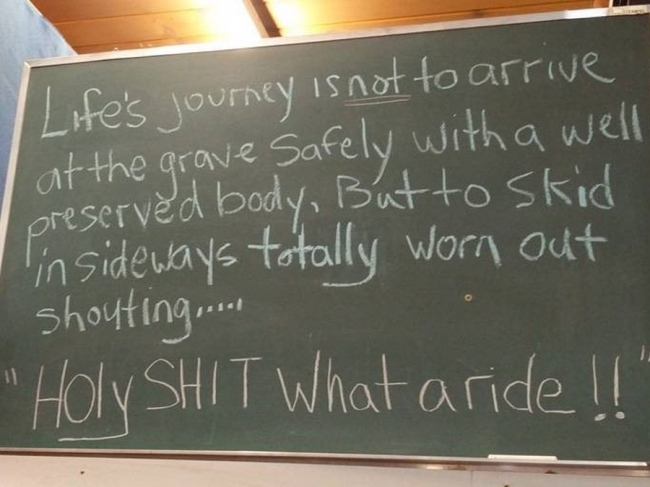 Life's journey is not to arrive
at the grave safely with a well
preserved body, But to skid
in sideways totally worn out
shouting.....
"Holy SHIT What a ride!!"